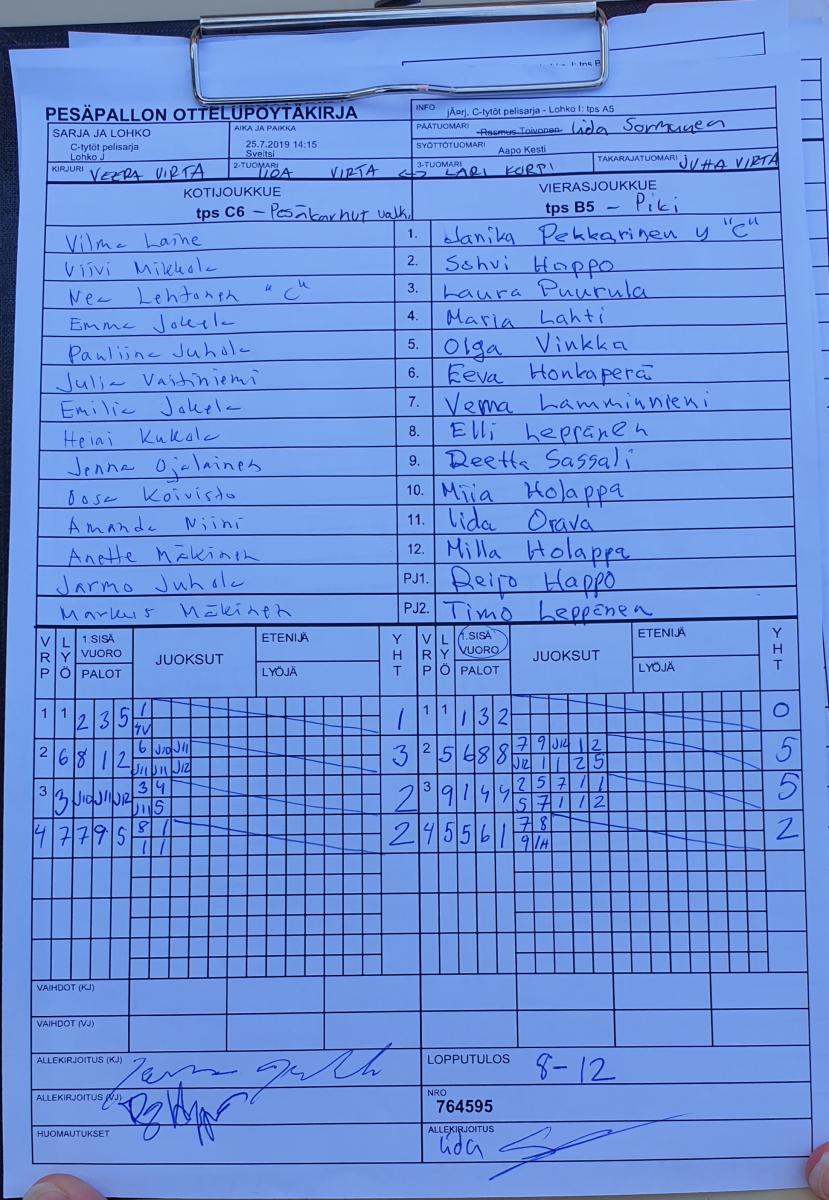 PESÄPALLON OTTELUPÖYTÄKIRJA
INFO jÄ¤rj, C-tytöt pelisarja - Lohko I: tps A5
SARJA JA LOHKO
C-tytöt pelisarja
Lohko J
AIKA JA PAIKKA
25.7.2019 14:15
Sveitsi
PÄÄTUOMARI Rasmus Toivonen Iida Sormunen
SYÖTTÖTUOMARI Aapo Kesti
KIRJURI VEERA VIRTA
2-TUOMARI VIRTA <->
3-TUOMARI LARI KORPI
TAKARAJATUOMARI JUHA VIRTA
KOTIJOUKKUE
tps C6 - Pesäkarhut valk.
VIERASJOUKKUE
tps B5 - Piki
Vilma Laine 1. Janika Pekkarinen y "C"
Viivi Mikkola 2. Sohvi Happo
Nea Lehtonen "C" 3. Laura Puurula
Emma Jokela 4. Maria Lahti
Pauliina Juhola 5. Olga Vinkka
Julia Vaitiniemi 6. Eeva Honkaperä
Emilia Jokela 7. Verna Lamminnieni
Heini Kukola 8. Elli Leppänen
Jenna Ojalainen 9. Reetta Sassali
Oosa Koivisto 10. Miia Holappa
Amanda Niini 11. Iida Orava
Anette Mäkinen 12. Milla Holappa
Jarmo Juhola PJ1. Reijo Happo
Markus Mäkinen PJ2. Timo Leppänen
VRP LYÖ 1.SISÄ VUORO PALOT JUOKSUT ETENIJÄ LYÖJÄ YHT VRP LYÖ 1.SISÄ VUORO PALOT JUOKSUT ETENIJÄ LYÖJÄ YHT
1 1 2 3 5 1 1 1 1 1 3 2 0
4V
2 6 8 1 2 6 J10 J11 3 2 5 6 8 8 7 9 J12 1 2 5
J11 J11 J12 J12 1 1 2 5
3 3 J10 J11 J12 3 4 2 3 9 1 4 4 2 5 7 1 1 5
J11 5 5 7 1 1 2
4 7 7 9 5 8 1 2 4 5 5 6 1 7 8 2
1 1 9
VAIHDOT (KJ)
VAIHDOT (VJ)
ALLEKIRJOITUS (KJ)
LOPPUTULOS 8-12
ALLEKIRJOITUS (VJ)
NRO
764595
HUOMAUTUKSET
ALLEKIRJOITUS
Iida